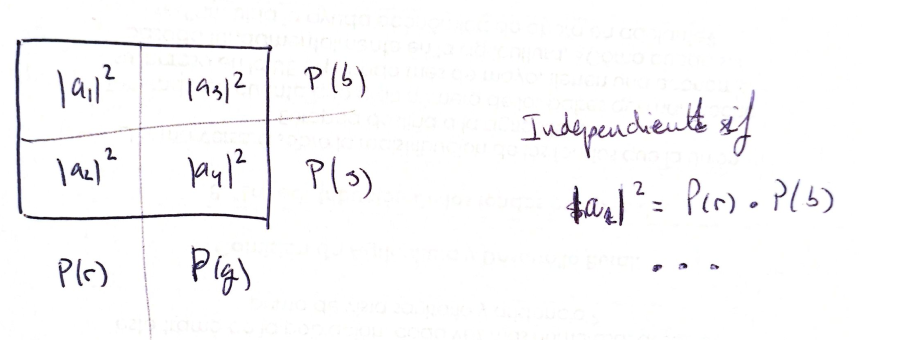 |a₁|² |a₃|² P(b)
|a₂|² |a₄|² P(s)
P(r) P(g)
Independientes si
|a₁|² = P(r) · P(b)
...